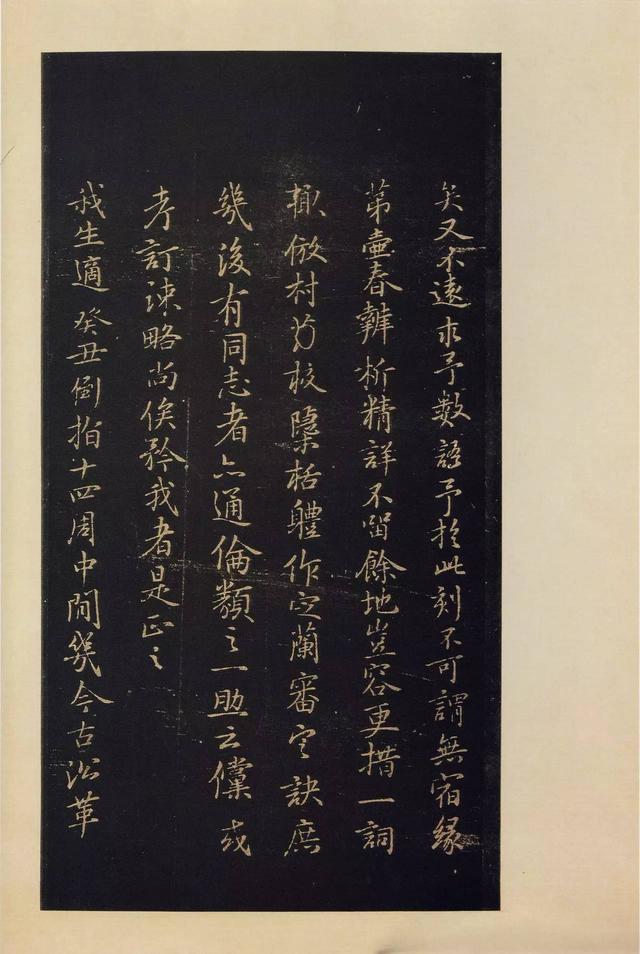 矣又不遠求予數語予於此刻不可謂無宿緣
第壷春辨析精詳不留餘地豈容更措一詞
輒倣村芍校檃栝體作定蘭審定訣庶
幾後有同志者亦通倫類之一助云儻或
考訂疎略尚俟矜我者是正之
我生適癸丑倒指十四周中間幾今古沿革